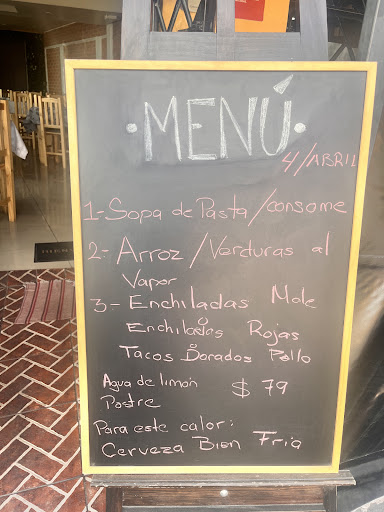 MENÚ
4/ABRIL
1-Sopa de Pasta/consome
2.- Arroz/Verduras al
Vapor
3.- Enchiladas Mole
o
Enchiladas Rojas
o
Tacos Dorados Pollo
Agua de limón $ 79
Postre
Para este calor:
Cerveza Bien Fria